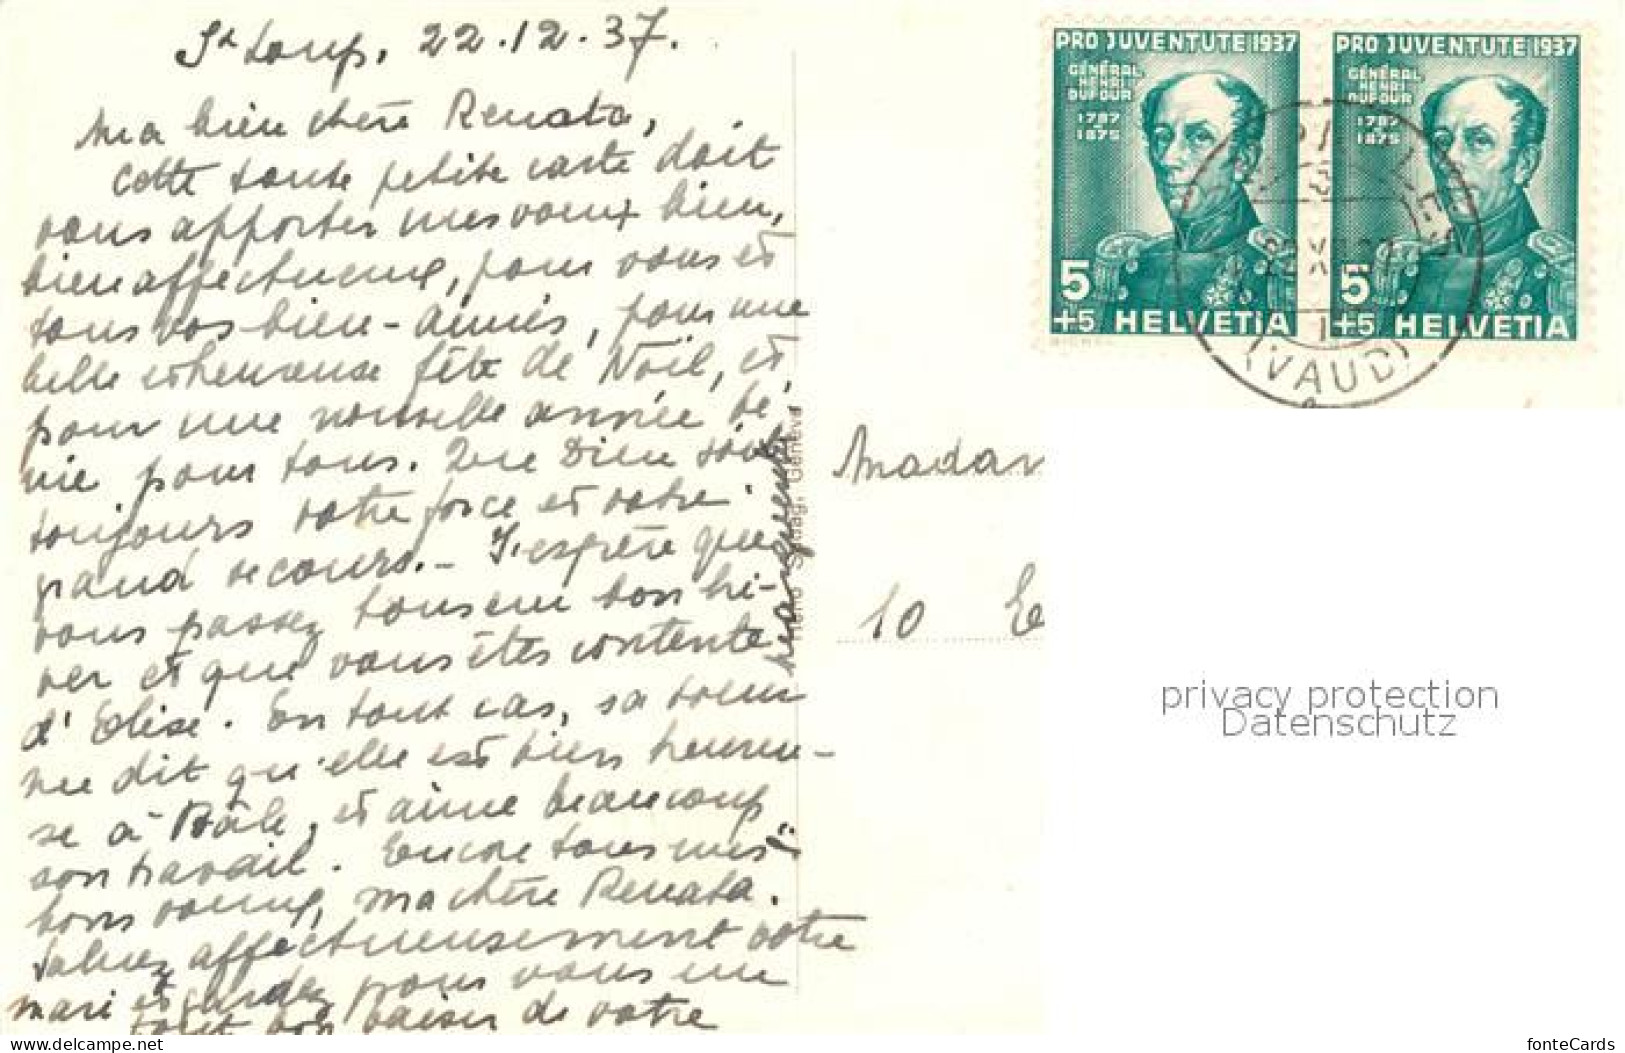 St Loup, 22.12.37.
Ma bien chère Renata,
Cette toute petite carte doit
vous apporter mes voeux bien,
bien affectueux, pour vous et
tous vos bien-aimés, pour une
belle et heureuse fête de Noël, et,
pour une nouvelle année bé-
nie pour tous. Que Dieu soit
toujours votre force et votre
grand secours. – J'espère que
vous passez tous un bon hi-
ver et que vous êtes contente
d'Elise. En tout cas, sa soeur
me dit qu'elle est bien heureu-
se à Bâle, et aime beaucoup
son travail. Encore tous mes
bons voeux, ma chère Renata.
Saluez affectueusement votre
mari et gardez pour vous un
tout bon baiser de votre
Genève
PRO JUVENTUTE 1937
GÉNÉRAL
HENRI
DUFOUR
1787
1875
5
+5 HELVETIA
PRO JUVENTUTE 1937
GÉNÉRAL
HENRI
DUFOUR
1787
1875
5
+5 HELVETIA
(VAUD)
Madam
10 E
privacy protection
Datenschutz
www.delcampe.net
fonteCards